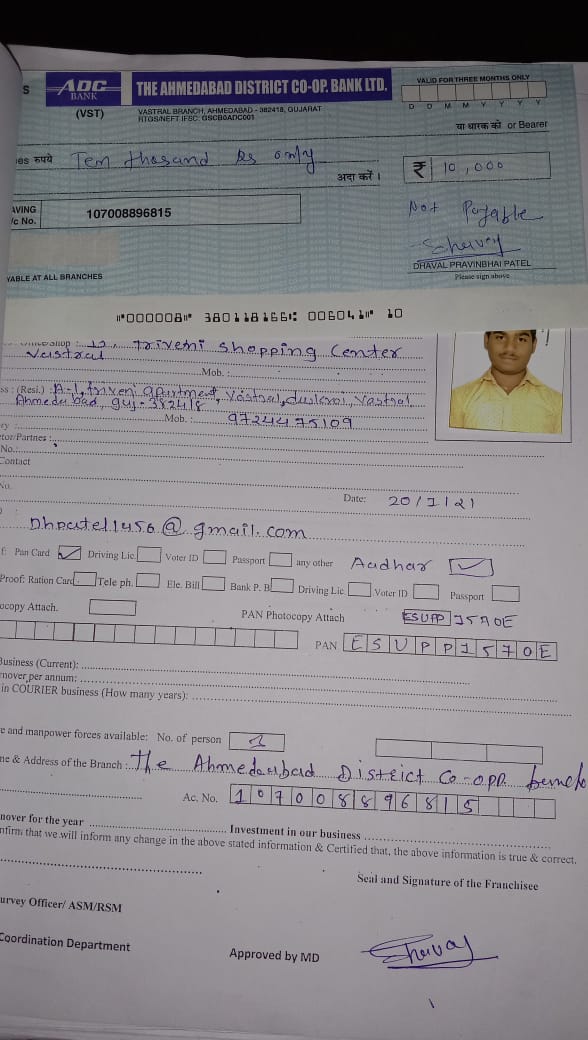 S ADC BANK THE AHMEDABAD DISTRICT CO-OP. BANK LTD. VALID FOR THREE MONTHS ONLY
(VST) VASTRAL BRANCH, AHMEDABAD - 382418, GUJARAT D D M M Y Y Y Y
RTGS/NEFT IFSC: GSCB0ADC001
या धारक को or Bearer
es रुपये Tem thosand Rs only
अदा करें । ₹ 10,000
AVING
/c No. 107008896815
Not Payable
Dhaval
DHAVAL PRAVINBHAI PATEL
YABLE AT ALL BRANCHES Please sign above
⑈000008⑈ 380118166⑆ 006041⑈ 10
Shop : 12, Triveni Shopping Center
Vastral Mob. :
ss : (Resi.) A-1, triveni apartment, Vastral, Vastral
Ahmedubad, guj- 382418
Mob. : 9724475109
ry :
tor/Partnes :
No.:
Contact
No.
Date: 20/1/21
Dhpatel1456@gmail.com
f: Pan Card Driving Lic. Voter ID Passport any other Aadhar
Proof: Ration Card Tele ph. Ele. Bill Bank P. B Driving Lic. Voter ID Passport
ocopy Attach. PAN Photocopy Attach ESUPP 1570E
PAN ESUPP1570E
Business (Current):
nover per annum:
in COURIER business (How many years):
e and manpower forces available: No. of person 1
ne & Address of the Branch : The Ahmedaubad District Co-opp. bemck
Ac. No. 107008896815
nover for the year Investment in our business
nfirm that we will inform any change in the above stated information & Certified that, the above information is true & correct.
Seal and Signature of the Franchisee
urvey Officer/ ASM/RSM
Coordination Department Approved by MD Dhaval